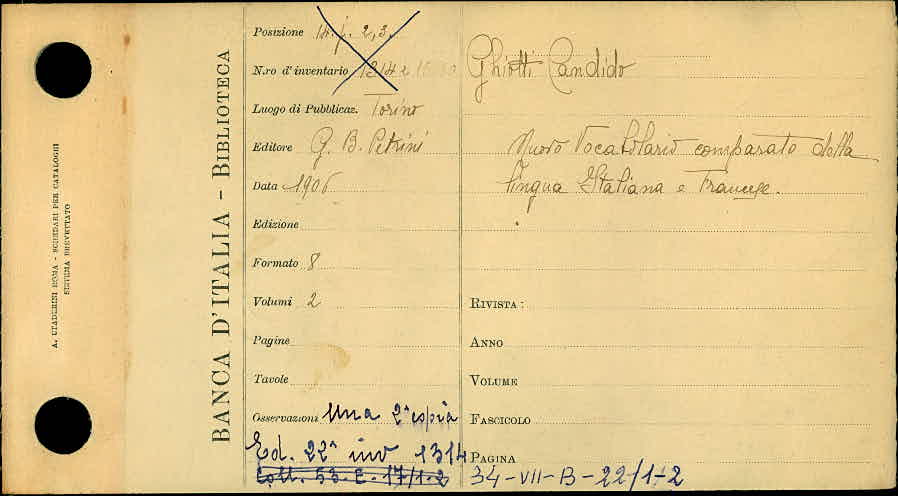 A. STADERINI ROMA - SCHEDARI PER CATALOGHI
SISTEMA BREVETTATO
BANCA D'ITALIA - BIBLIOTECA
Posizione 2, 3,
N.ro d'inventario 1314
Luogo di Pubblicaz. Torino
Editore G. B. Petrini
Data 1906
Edizione
Formato 8
Volumi 2
Pagine
Tavole
Osservazioni Una 2ª copia
Ed. 22ª inv 1314
Coll. 53-E-17/1-2
Ghiotti Candido
Nuovo Vocabolario comparato della
lingua Italiana e Francese.
RIVISTA:
ANNO
VOLUME
FASCICOLO
PAGINA
34-VII-B-22/1-2